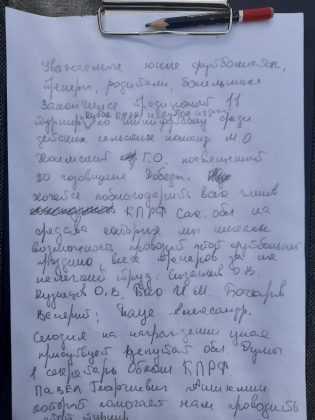 Уважаемые юные футболисты,
тренера, родители, болельщики.
Закончился традиционый 18
турнир по мини футболу среди
детских сельских команд М.О
Холмский Г.О. посвещенный
80 годовщине Победы.
хочется поблагодарить всех членов
КПРФ Сах. обл на
средства которых мы имеем
возможность проводить этот футбольный
праздник, всех тренеров за их
нелёгкий труд: О.В.
Кузнецов О.В. И.М. Бочкарёв
Валерий, Александр.
Сегодня на награждении у нас
присутствует депутат обл. Думы
1 секретарь Обкома КПРФ
Павел Георгиевич
который помогает нам проводить
этот турнир